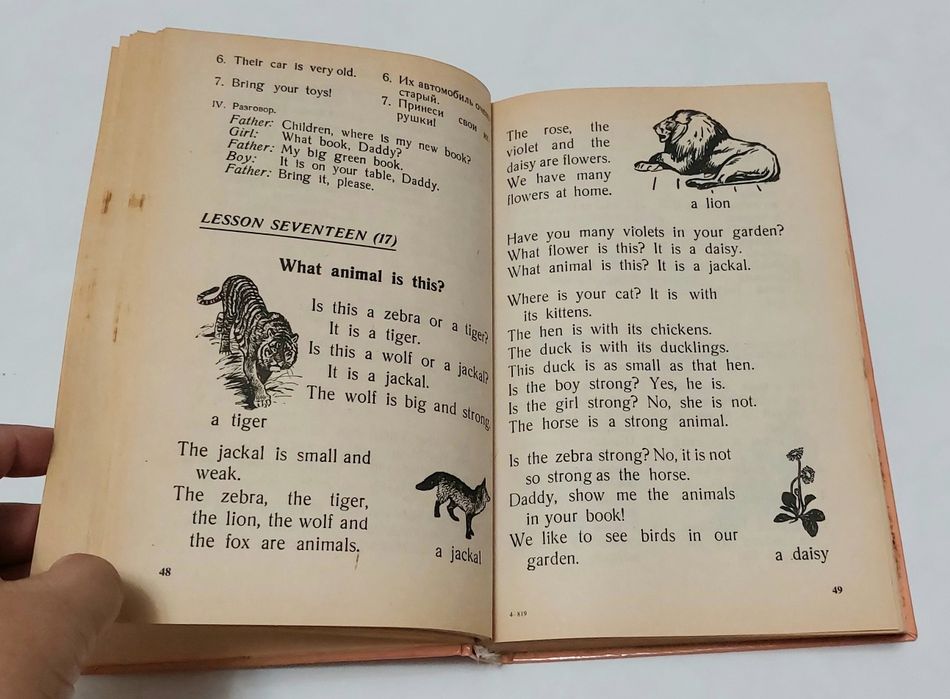 6. Their car is very old.
7. Bring your toys!
6. Их автомобиль очень
старый.
7. Принеси свои
рушки!
IV. Разговор.
Father: Children, where is my new book?
Girl: What book, Daddy?
Father: My big green book.
Boy: It is on your table, Daddy.
Father: Bring it, please.
LESSON SEVENTEEN (17)
What animal is this?
Is this a zebra or a tiger?
It is a tiger.
Is this a wolf or a jackal?
It is a jackal.
The wolf is big and strong.
a tiger
The jackal is small and
weak.
The zebra, the tiger,
the lion, the wolf and
the fox are animals.
a jackal
48
The rose, the
violet and the
daisy are flowers.
We have many
flowers at home.
a lion
Have you many violets in your garden?
What flower is this? It is a daisy.
What animal is this? It is a jackal.
Where is your cat? It is with
its kittens.
The hen is with its chickens.
The duck is with its ducklings.
This duck is as small as that hen.
Is the boy strong? Yes, he is.
Is the girl strong? No, she is not.
The horse is a strong animal.
Is the zebra strong? No, it is not
so strong as the horse.
Daddy, show me the animals
in your book!
We like to see birds in our
garden.
a daisy
4-819
49